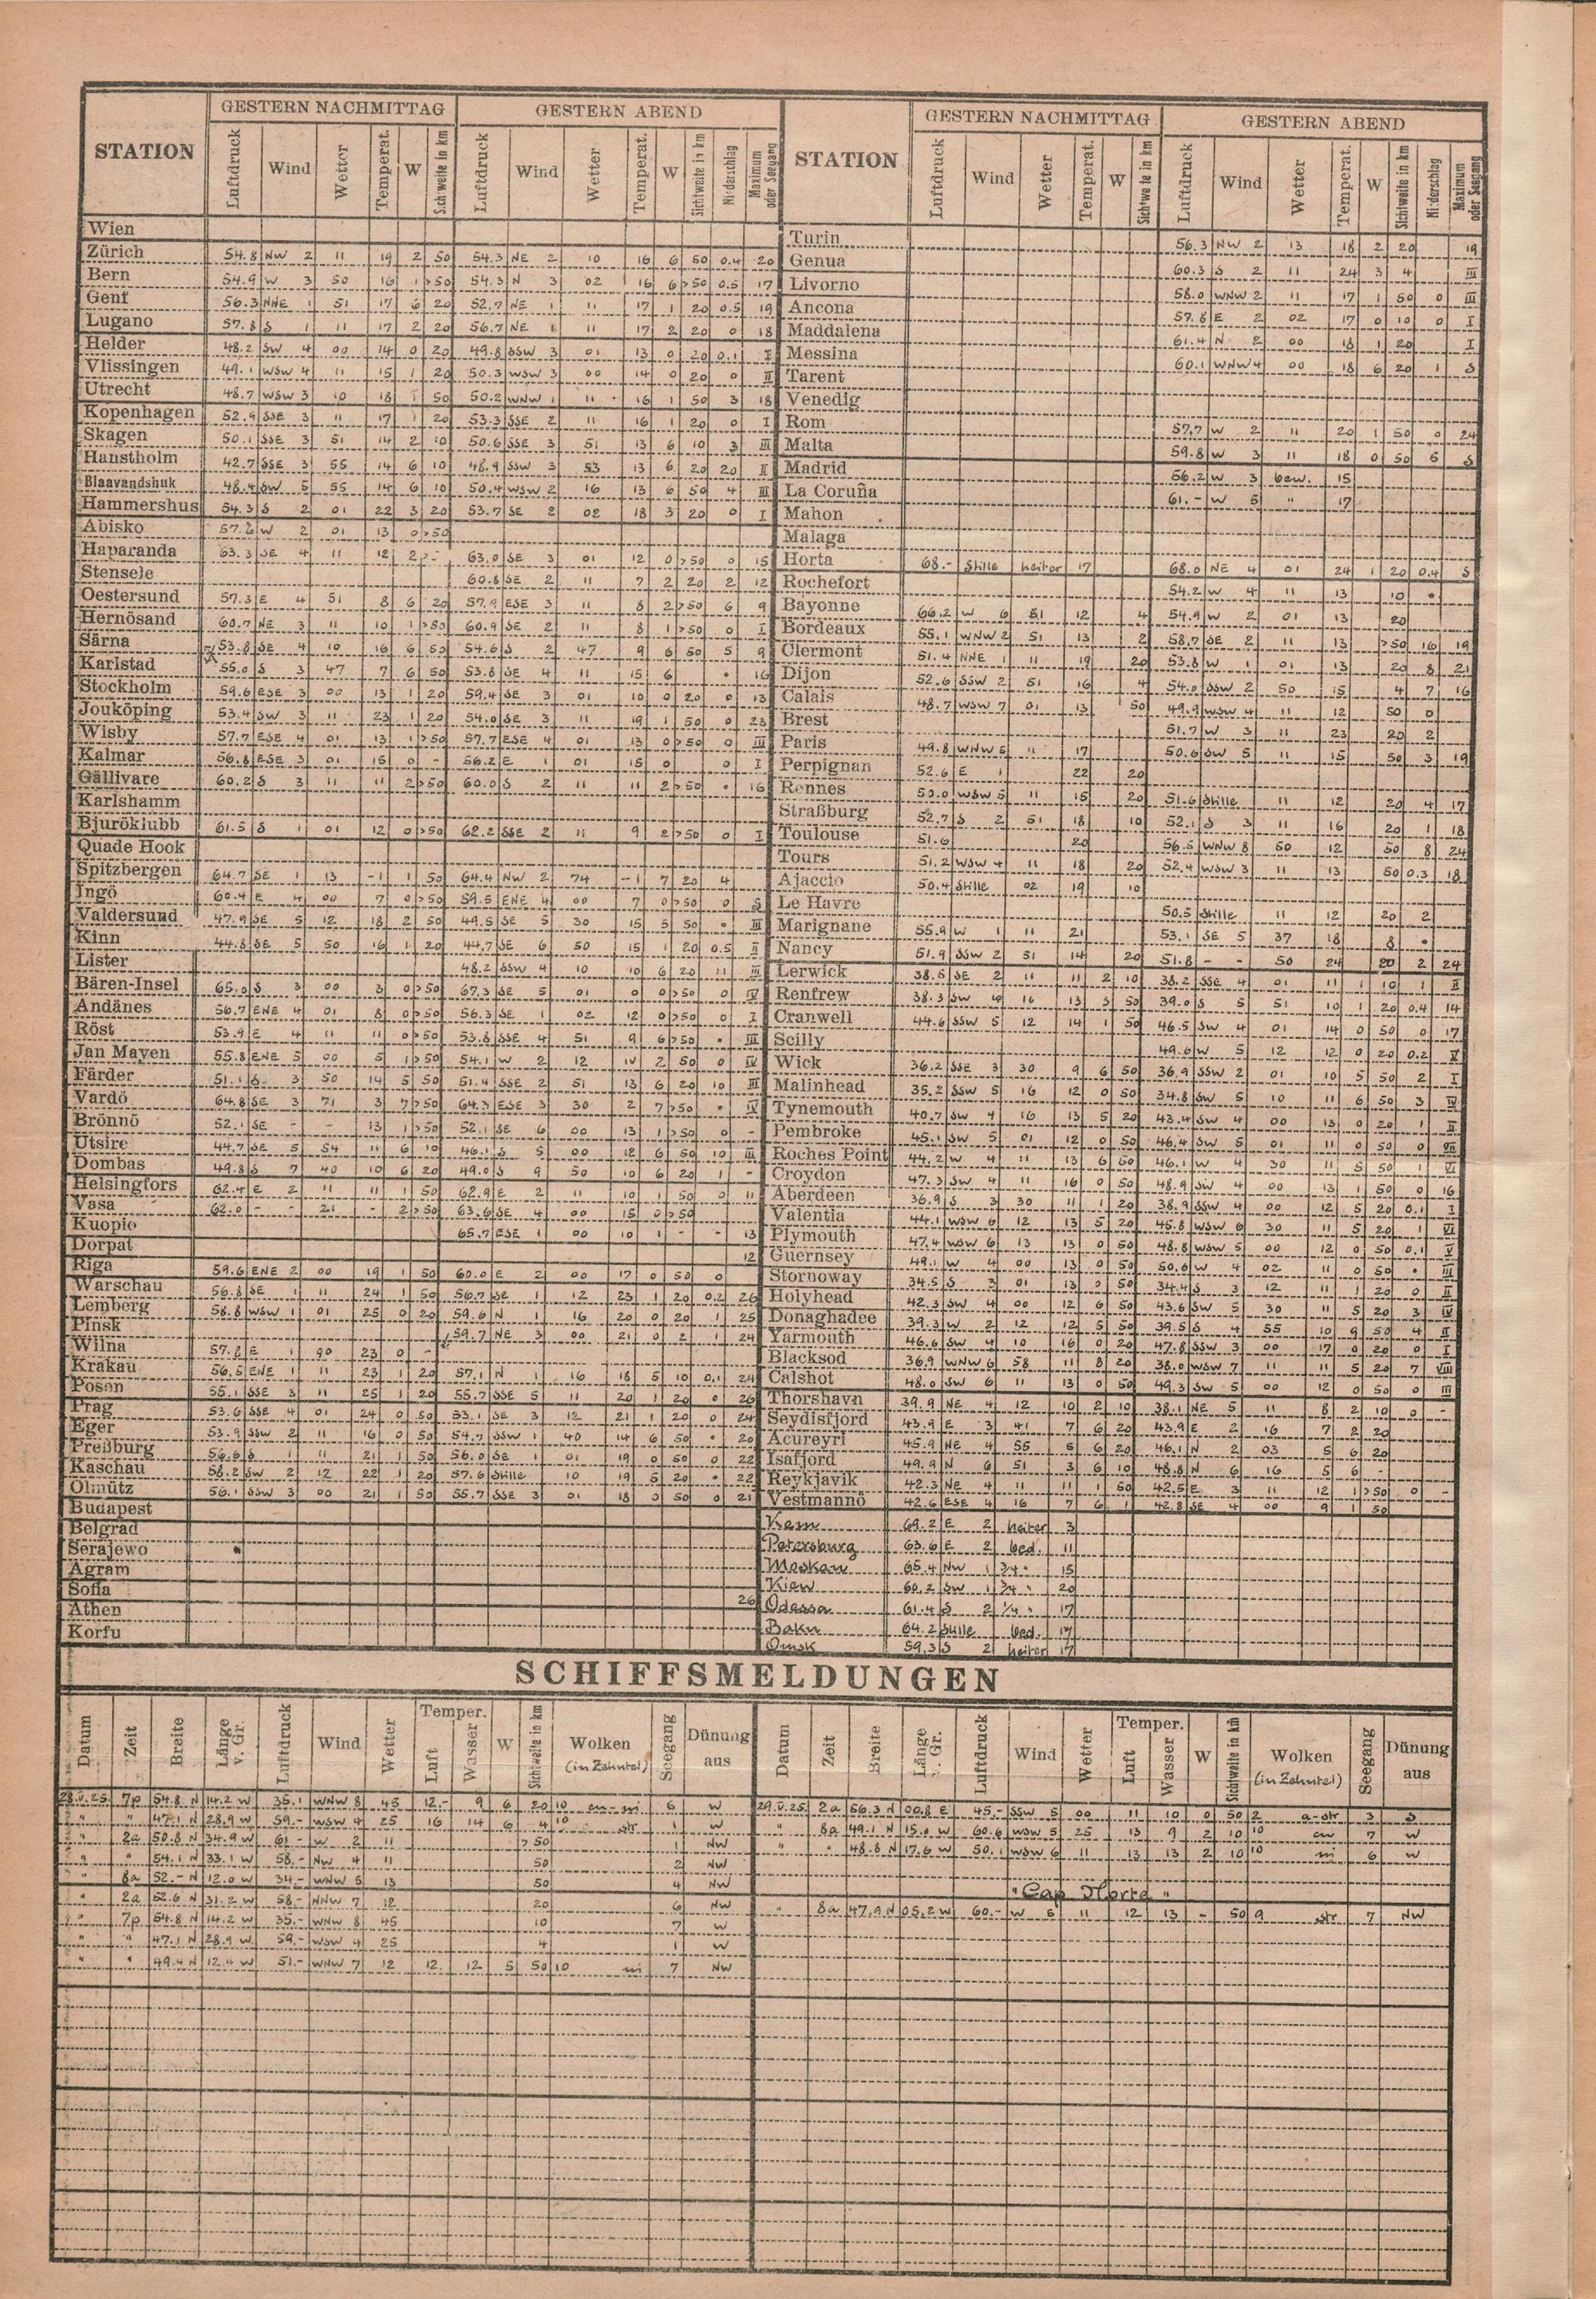 STATION GESTERN NACHMITTAG GESTERN ABEND
Luftdruck Wind Wetter Temperat. W Sichtweite in km Luftdruck Wind Wetter Temperat. W Sichtweite in km Niederschlag Maximum oder Seegang
Wien
Zürich 54.8 NW 2 11 19 2 50 54.3 NE 2 10 16 6 50 0.4 20
Bern 54.9 W 3 50 16 1 >50 54.3 N 3 02 16 6 >50 0.5 17
Genf 56.3 NNE 1 51 17 6 20 52.7 NE 1 11 17 1 20 0.5 19
Lugano 57.8 S 1 11 17 2 20 56.7 NE 1 11 17 2 20 0 18
Helder 48.2 SW 4 00 14 0 20 49.8 SSW 3 01 13 0 20 0.1 I
Vlissingen 49.1 WSW 4 11 15 1 20 50.3 WSW 3 00 14 0 20 0 II
Utrecht 48.7 WSW 3 10 18 1 50 50.2 WNW 1 11 16 1 50 3 18
Kopenhagen 52.9 SSE 3 11 17 1 20 53.3 SSE 2 11 16 1 20 0 I
Skagen 50.1 SSE 3 51 14 2 10 50.6 SSE 3 51 13 6 10 3 III
Hanstholm 42.7 SSE 3 55 14 6 10 48.9 SSW 3 53 13 6 20 20 II
Blaavandshuk 48.4 SW 5 55 14 6 10 50.4 WSW 2 16 13 6 50 4 III
Hammershus 54.3 S 2 01 22 3 20 53.7 SE 2 02 18 3 20 0 I
Abisko 57.6 W 2 01 13 0 >50
Haparanda 63.3 SE 4 11 12 2 >- 63.0 SE 3 01 12 0 >50 0 15
Stensele 60.8 SE 2 11 7 2 20 2 12
Oestersund 57.3 E 4 51 8 6 20 57.9 ESE 3 11 8 2 >50 6 9
Hernösand 60.7 NE 3 11 10 1 >50 60.9 SE 2 11 8 1 >50 0 I
Särna 53.8 SE 4 10 16 6 50 54.6 S 2 47 9 6 50 5 9
Karlstad 55.0 S 3 47 7 6 50 53.8 SE 4 11 15 6 • 16
Stockholm 59.6 ESE 3 00 13 1 20 59.4 SE 3 01 10 0 20 0 13
Jouköping 53.4 SW 3 11 23 1 20 54.0 SE 3 11 19 1 50 0 23
Wisby 57.7 ESE 4 01 13 1 >50 57.7 ESE 4 01 13 0 >50 0 III
Kalmar 56.8 ESE 3 01 15 0 - 56.2 E 1 01 15 0 0 I
Gällivare 60.2 S 3 11 11 2 >50 60.0 S 2 11 11 2 >50 • 16
Karlshamm
Bjuröklubb 61.5 S 1 01 12 0 >50 62.2 SSE 2 11 9 2 >50 0 I
Quade Hook
Spitzbergen 64.7 SE 1 13 -1 1 50 64.4 NW 2 74 -1 7 20 4
Ingö 60.4 E 4 00 7 0 >50 59.5 ENE 4 00 7 0 >50 0 S
Valdersund 47.9 SE 5 12 18 2 50 49.5 SE 5 30 15 5 50 • III
Kinn 44.8 SE 5 50 16 1 20 44.7 SE 6 50 15 1 20 0.5 II
Lister 48.2 SSW 4 10 10 6 20 11 III
Bären-Insel 65.0 S 3 00 3 0 >50 67.3 SE 5 01 0 0 >50 0 IV
Andänes 56.7 ENE 4 01 8 0 >50 56.3 SE 1 02 12 0 >50 0 I
Röst 53.9 E 4 11 11 0 >50 53.8 SSE 4 51 9 6 >50 • III
Jan Mayen 55.8 ENE 5 00 5 1 >50 54.1 W 2 12 2 50 0 IV
Färder 51.1 S 3 50 14 5 50 51.4 SSE 2 51 13 6 20 10 III
Vardö 64.8 SE 3 71 3 7 >50 64.3 ESE 3 30 2 7 >50 • IV
Brönnö 52.1 SE - - 13 1 >50 52.1 SE 6 00 13 1 >50 0 -
Utsire 44.7 SE 5 54 11 6 10 46.1 S 5 00 12 6 50 10 III
Dombas 49.8 S 7 40 10 6 20 49.0 S 9 50 10 6 20 1 -
Helsingfors 62.4 E 2 11 11 1 50 62.9 E 2 11 10 1 50 0 11
Vasa 62.0 - - 21 - 2 >50 63.6 SE 4 00 15 0 >50
Kuopio 65.7 ESE 1 00 10 1 - - 13
Dorpat 12
Riga 59.6 ENE 2 00 19 1 50 60.0 E 2 00 17 0 50 0
Warschau 56.8 SE 1 11 24 1 50 56.7 SE 1 12 23 1 20 0.2 26
Lemberg 56.8 WSW 1 01 25 0 20 59.6 N 1 16 20 0 20 1 25
Pinsk 59.7 NE 3 00 21 0 2 1 24
Wilna 57.2 E 1 90 23 0 -
Krakau 56.5 ENE 1 11 23 1 20 57.1 N 1 16 18 5 10 0.1 24
Posen 55.1 SSE 3 11 25 1 20 55.7 SSE 5 11 20 1 20 0 26
Prag 53.6 SSE 4 01 24 0 50 53.1 SE 3 12 21 1 20 0 24
Eger 53.9 SSW 2 11 16 0 50 54.7 SSW 1 40 14 6 50 • 20
Preßburg 56.6 S 1 11 21 1 50 56.0 SE 1 01 19 0 50 0 22
Kaschau 58.2 SW 2 12 22 1 20 57.6 Stille 10 19 5 20 • 22
Olmütz 56.1 SSW 3 00 21 1 50 55.7 SSE 3 01 18 0 50 0 21
Budapest
Belgrad
Serajewo
Agram
Sofia 26
Athen
Korfu
STATION GESTERN NACHMITTAG GESTERN ABEND
Luftdruck Wind Wetter Temperat. W Sichtweite in km Luftdruck Wind Wetter Temperat. W Sichtweite in km Niederschlag Maximum oder Seegang
Turin 56.3 NW 2 13 18 2 20 19
Genua 60.3 S 2 11 24 3 4 III
Livorno 58.0 WNW 2 11 17 1 50 0 III
Ancona 57.8 E 2 02 17 0 10 0 I
Maddalena 61.4 N 2 00 18 1 20 I
Messina 60.1 WNW 4 00 18 6 20 1 S
Tarent
Venedig
Rom 57.7 W 2 11 20 1 50 0 24
Malta 59.8 W 3 11 18 0 50 6 S
Madrid 56.2 W 3 bew. 15
La Coruña 61.- W 5 " 17
Mahon
Malaga
Horta 68.- Stille heiter 17 68.0 NE 4 01 24 1 20 0.4 S
Rochefort 54.2 W 4 11 13 10 •
Bayonne 66.2 W 6 51 12 4 54.9 W 2 01 13 20
Bordeaux 55.1 WNW 2 51 13 2 58.7 SE 2 11 13 >50 16 19
Clermont 51.4 NNE 1 11 19 20 53.8 W 1 01 13 20 8 21
Dijon 52.6 SSW 2 51 16 4 54.0 SSW 2 50 15 4 7 16
Calais 48.7 WSW 7 01 13 50 49.9 WSW 4 11 12 50 0
Brest 51.7 W 3 11 23 20 2
Paris 49.8 WNW 5 11 17 50.6 SW 5 11 15 50 3 19
Perpignan 52.6 E 1 22 20
Rennes 50.0 WSW 5 11 15 20 51.6 Stille 11 12 20 4 17
Straßburg 52.7 S 2 51 18 10 52.1 S 3 11 16 20 1 18
Toulouse 51.6 20 56.5 WNW 8 50 12 50 8 24
Tours 51.2 WSW 4 11 18 20 52.4 WSW 3 11 13 50 0.3 18
Ajaccio 50.4 Stille 02 19 10
Le Havre 50.5 Stille 11 12 20 2
Marignane 55.9 W 1 11 21 53.1 SE 5 37 18 8 •
Nancy 51.9 SSW 2 51 14 20 51.8 - - 50 24 20 2 24
Lerwick 38.5 SE 2 11 11 2 10 38.2 SSE 4 01 11 1 10 1 II
Renfrew 38.3 SW 4 16 13 3 50 39.0 S 5 51 10 1 20 0.4 14
Cranwell 44.6 SSW 5 12 14 1 50 46.5 SW 4 01 14 0 50 0 17
Scilly 49.6 W 5 12 12 0 20 0.2 V
Wick 36.2 SSE 3 30 9 6 50 36.9 SSW 2 01 10 5 50 2 I
Malinhead 35.2 SSW 5 16 12 0 50 34.8 SW 5 10 11 6 50 3 IV
Tynemouth 40.7 SW 4 16 13 5 20 43.4 SW 4 00 13 0 20 1 II
Pembroke 45.1 SW 5 01 12 0 50 46.4 SW 5 01 11 0 50 0 VII
Roches Point 44.2 W 4 11 13 6 50 46.1 W 4 30 11 5 50 1 VI
Croydon 47.3 SW 4 11 16 0 50 48.9 SW 4 00 13 1 50 0 16
Aberdeen 36.9 S 3 30 11 1 20 38.9 SSW 4 00 12 5 20 0.1 I
Valentia 44.1 WSW 6 12 13 5 20 45.8 WSW 6 30 11 5 20 1 VI
Plymouth 47.4 WSW 6 13 13 0 50 48.8 WSW 5 00 12 0 50 0.1 V
Guernsey 49.1 W 4 00 13 0 50 50.6 W 4 02 11 0 50 • III
Stornoway 34.5 S 3 01 13 0 50 34.4 S 3 12 11 1 20 0 II
Holyhead 42.3 SW 4 00 12 6 50 43.6 SW 5 30 11 5 20 3 IV
Donaghadee 39.3 W 2 12 12 5 50 39.5 S 4 55 10 9 50 4 II
Yarmouth 46.6 SW 4 10 16 0 20 47.8 SSW 3 00 17 0 20 0 I
Blacksod 36.9 WNW 6 58 11 8 20 38.0 WSW 7 11 11 5 20 7 VIII
Calshot 48.0 SW 6 11 13 0 50 49.3 SW 5 00 12 0 50 0 III
Thorshavn 39.9 NE 4 12 10 2 10 38.1 NE 5 11 8 2 10 0 -
Seydisfjord 43.9 E 3 41 7 6 20 43.9 E 2 16 7 2 20
Acureyri 45.9 NE 4 55 5 6 20 46.1 N 2 03 5 6 20
Isafjord 49.9 N 6 51 3 6 10 48.8 N 6 16 5 6 -
Reykjavik 42.3 NE 4 11 11 1 50 42.5 E 3 11 12 1 >50 0 -
Vestmannö 42.6 ESE 4 16 7 6 1 42.8 SE 4 00 9 1 50
Kem 69.2 E 2 heiter 3
Petersburg 63.6 E 2 bed. 11
Moskau 65.4 NW 1 3/4 " 15
Kiew 60.2 SW 1 3/4 " 20
Odessa 61.4 S 2 1/4 " 17
Baku 64.2 Stille bed. 17
Omsk 59.3 S 2 heiter 17
SCHIFFSMELDUNGEN
Datum Zeit Breite Länge v. Gr. Luftdruck Wind Wetter Temper. Luft Wasser W Sichtweite in km Wolken (in Zehntel) Seegang Dünung aus
28.V.25. 7p 54.8 N 14.2 W 35.1 WNW 8 45 12.- 9 6 20 10 cu-ni 6 W
" " 47.1 N 28.9 W 59.- WSW 4 25 16 14 6 4 10 str 1 W
" 2a 50.8 N 34.9 W 61.- W 2 11 >50 1 NW
" " 54.1 N 33.1 W 58.- NW 4 11 50 2 NW
" 8a 52.- N 12.0 W 34.- WNW 5 13 50 4 NW
" 2a 52.6 N 31.2 W 58.- NNW 7 12 20 6 NW
" 7p 54.8 N 14.2 W 35.- WNW 8 45 10 7 W
" " 47.1 N 28.9 W 59.- WSW 4 25 4 1 W
" " 49.4 N 12.4 W 51.- WNW 7 12 12. 12 5 50 10 ni 7 NW
Datum Zeit Breite Länge v. Gr. Luftdruck Wind Wetter Temper. Luft Wasser W Sichtweite in km Wolken (in Zehntel) Seegang Dünung aus
29.V.25. 2a 56.3 N 00.8 E 45.- SSW 5 00 11 10 0 50 2 a-str 3 S
" 8a 49.1 N 15.0 W 60.6 WSW 5 25 13 9 2 10 10 cu 7 W
" " 48.8 N 17.6 W 50.1 WSW 6 11 13 13 2 10 10 ni 6 W
"Cap Norte"
" 8a 47.9 N 05.2 W 60.- W 6 11 12 13 - 50 9 str 7 NW